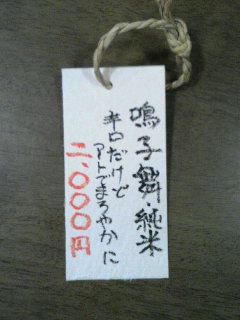 鳴子舞・純米
辛口だけど
アトでまろやかに
二、〇〇〇円